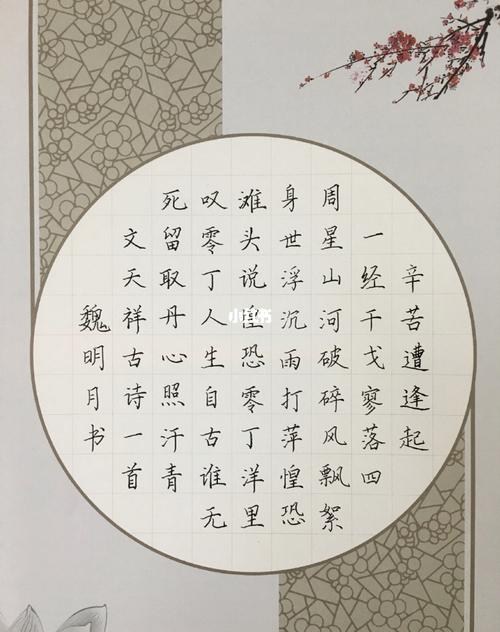 辛苦遭逢起
一经干戈寥落四
周星山河破碎风飘絮
身世浮沉雨打萍惶恐
滩头说惶恐零丁洋里
叹零丁人生自古谁无
死留取丹心照汗青
文天祥古诗一首
魏明月书
小红书